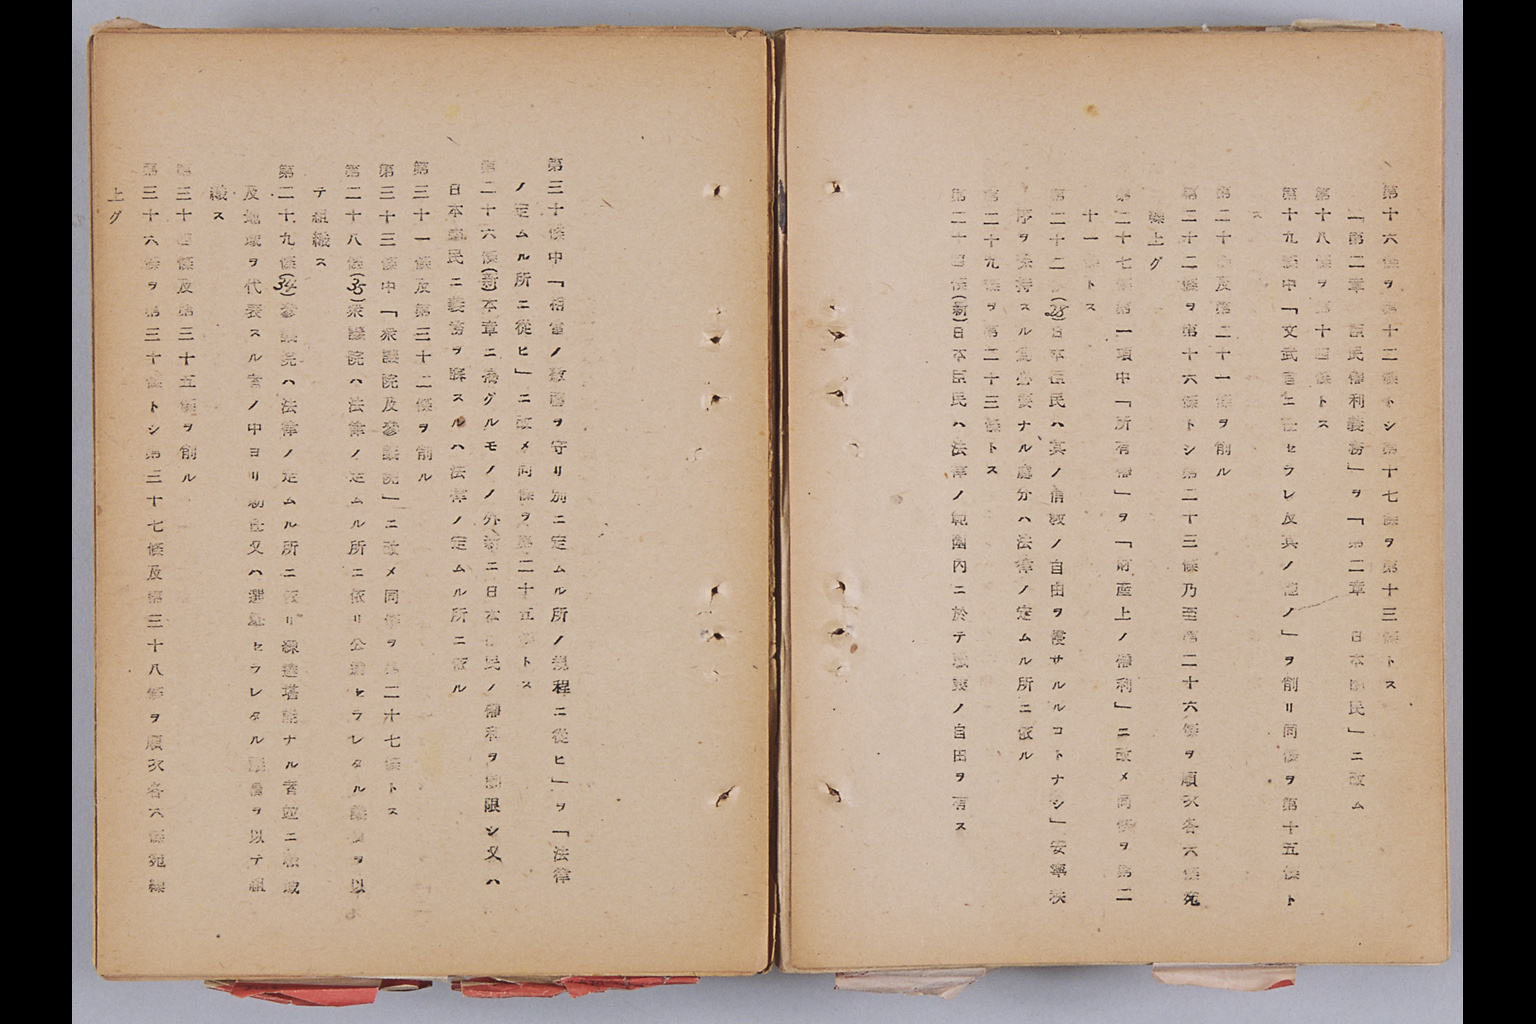 第十六條ヲ第十二條トシ第十七條ヲ第十三條トス
「第二章 臣民權利義務」ヲ「第二章 日本臣民」ニ改ム
第十八條ヲ第十四條トス
第十九條中「文武官ニ任セラレ及其ノ他ノ」ヲ削リ同條ヲ第十五條ト
ス
第二十條及第二十一條ヲ削ル
第二十二條ヲ第十六條トシ第二十三條乃至第二十六條ヲ順次各六條宛
繰上グ
第二十七條第一項中「所有權」ヲ「財産上ノ權利」ニ改メ同條ヲ第二
十一條トス
第二十二條(28)日本臣民ハ其ノ信敎ノ自由ヲ侵サルルコトナシ」安寧秩
序ヲ保持スル爲必要ナル處分ハ法律ノ定ムル所ニ依ル
第二十九條ヲ第二十三條トス
第二十四條(新)日本臣民ハ法律ノ範圍內ニ於テ職業ノ自由ヲ有ス
第三十條中「相當ノ敬禮ヲ守リ別ニ定ムル所ノ規程ニ從ヒ」ヲ「法律
ノ定ムル所ニ從ヒ」ニ改メ同條ヲ第二十五條トス
第二十六條(新)本章ニ揭グルモノノ外新ニ日本臣民ノ權利ヲ制限シ又ハ
日本臣民ニ義務ヲ課スルハ法律ノ定ムル所ニ依ル
第三十一條及第三十二條ヲ削ル
第三十三條中「衆議院及參議院」ニ改メ同條ヲ第二十七條トス
第二十八條(35)衆議院ハ法律ノ定ムル所ニ依リ公選セラレタル議員ヲ以
テ組織ス
第二十九條(34)參議院ハ法律ノ定ムル所ニ依リ練達堪能ナル者竝ニ職域
及地域ヲ代表スル者ノ中ヨリ勅任又ハ選擧セラレタル議員ヲ以テ組
織ス
第三十四條及第三十五條ヲ削ル
第三十六條ヲ第三十條トシ第三十七條及第三十八條ヲ順次各六條宛繰
上グ